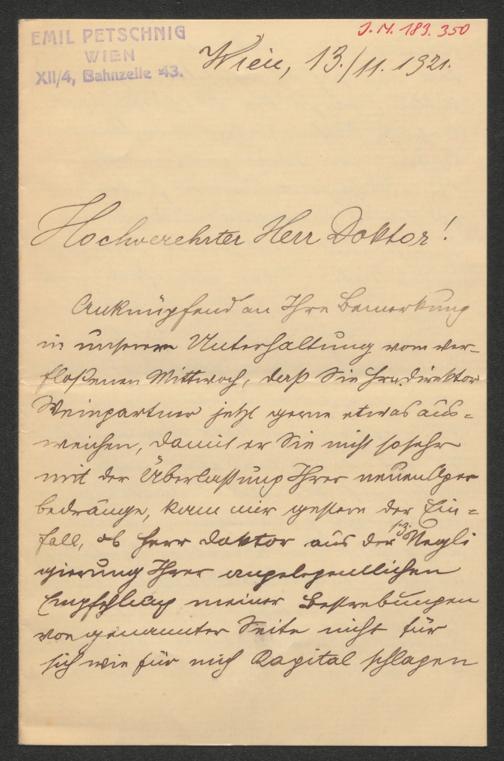 EMIL PETSCHNIG
WIEN
XII/4, Bahnzeile 43.
J.N. 189.350
Wien, 13./11. 1921.
Hochverehrter Herr Doktor!
Anknüpfend an Ihre Bemerkung
in unserer Unterhaltung vom ver-
floßenen Mittwoch, daß Sie Hrn. Direktor
Weingartner jetzt gerne etwas aus=
weichen, damit er Sie nicht so sehr
mit der Überlassung Ihrer neuen Oper
bedränge, kam mir gestern der Ein=
fall, ob Herr Doktor aus der Negli
gierung Ihrer angelegentlichen
Empfehlung meiner Bestrebungen
von genannter Seite nicht für
sich wie für mich Kapital schlagen